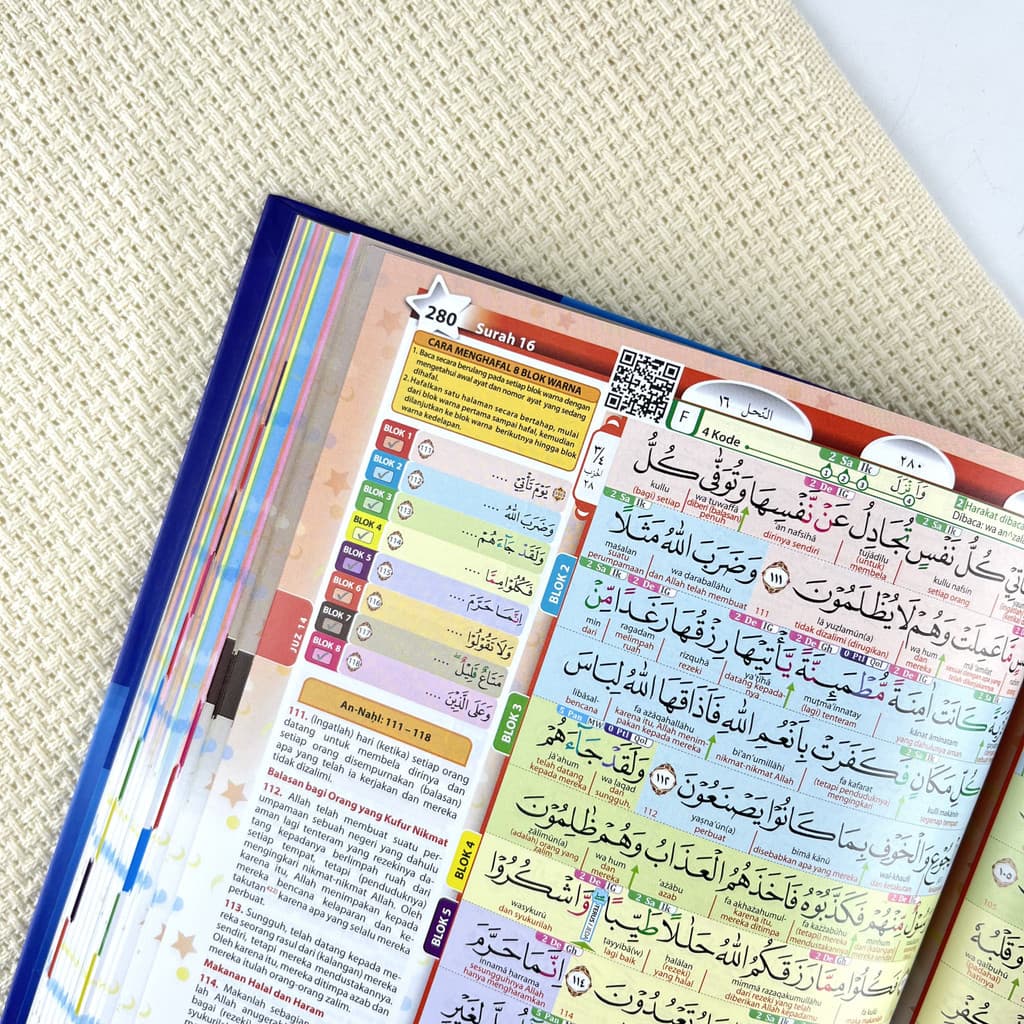 280
Surah 16
CARA MENGHAFAL 8 BLOK WARNA
1. Baca secara berulang pada setiap blok warna dengan
mengetahui awal ayat dan nomor ayat yang sedang
dihafal.
2. Hafalkan satu halaman secara bertahap, mulai
dari blok warna pertama sampai hafal, kemudian
dilanjutkan ke blok warna berikutnya hingga blok
warna kedelapan.
BLOK 1
111
يَوْمَ تَأْتِيْ ....
BLOK 2
112
وَضَرَبَ اللّٰهُ ....
BLOK 3
113
وَلَقَدْ جَاۤءَهُمْ ....
BLOK 4
114
فَكُلُوْا مِمَّا ....
BLOK 5
115
اِنَّمَا حَرَّمَ ....
BLOK 6
116
وَلَا تَقُوْلُوْا ....
BLOK 7
117
مَتَاعٌ قَلِيْلٌ ....
BLOK 8
118
وَعَلَى الَّذِيْنَ ....
JUZ 14
An-Naḥl: 111 – 118
111. (Ingatlah) hari (ketika) setiap orang
datang untuk membela dirinya dan
setiap orang disempurnakan (balasan)
apa yang telah ia kerjakan dan mereka
tidak dizalimi.
Balasan bagi Orang yang Kufur Nikmat
112. Allah telah membuat suatu per-
umpamaan sebuah negeri yang dahulu
aman lagi tenteram yang rezekinya da-
tang kepadanya berlimpah ruah dari
setiap tempat, tetapi (penduduknya)
mengingkari nikmat-nikmat Allah. Oleh
karena itu, Allah menimpakan kepada
mereka bencana kelaparan dan ke-
takutan karena apa yang selalu mereka
perbuat.
113. Sungguh, telah datang kepada me-
reka seorang rasul dari (kalangan) mereka
sendiri, tetapi mereka mendustakannya.
Oleh karena itu, mereka ditimpa azab dan
mereka itulah orang-orang zalim.
Makanan Halal dan Haram
114. Makanlah sebagian
lah Allah anugerah
bagai (rezeki)
syukurilah
النّحل ١٦
٢٨٠
F
4 Kode
2 Harakat dibaca
Dibaca: wa
كُلُّ نَفْسٍ تُجَادِلُ عَنْ نَّفْسِهَا وَتُوَفّٰى كُلُّ
kullu nafsin
setiap orang
tujādilu
(untuk)
membela
an nafsihā
dirinya sendiri
wa tuwaffā
diberi (balasan)
penuh
kullu
(bagi) setiap
عَمِلَتْ وَهُمْ لَا يُظْلَمُوْنَ ١١١ وَضَرَبَ اللّٰهُ مَثَلًا
wa hum
dan
mereka
lā yuẓlamūn(a)
tidak dizalimi (dirugikan)
111
wa daraballāhu
dan Allah telah membuat
maṡalan
suatu
perumpamaan
BLOK 2
كَانَتْ اٰمِنَةً مُّطْمَىِٕنَّةً يَّأْتِيْهَا رِزْقُهَا رَغَدًا مِّنْ
kānat āminatam
yang dahulunya aman
muṭma'innatay
(lagi) tenteram
ya'tīhā
datang kepada-
nya
rizquhā
rezeki
ragadam
melimpah
ruah
min
dari
كُلِّ مَكَانٍ فَكَفَرَتْ بِاَنْعُمِ اللّٰهِ فَاَذَاقَهَا اللّٰهُ لِبَاسَ
kulli makānin
segenap tempat
fa kafarat
(tetapi penduduknya)
mengingkari
bi'an'umillāhi
nikmat-nikmat Allah
fa ażāqahallāhu
karena itu, Allah menim-
pakan kepada mereka
libāsal-
bencana
BLOK 3
وَالْخَوْفِ بِمَا كَانُوْا يَصْنَعُوْنَ ١١٢ وَلَقَدْ جَاۤءَهُمْ
wal-khaufi
dan ketakutan
bimā kānū
disebabkan apa yang mereka
yaṣna'ūn(a)
perbuat
112
wa laqad
dan
sungguh,
jā'ahum
telah datang
kepada mereka
مِّنْهُمْ فَكَذَّبُوْهُ فَاَخَذَهُمُ الْعَذَابُ وَهُمْ ظٰلِمُوْنَ
minhum
fa każżabūhu
(tetapi) mereka
mendustakannya
fa akhażahumul-
karena itu,
mereka ditimpa
'ażābu
azab
wa hum
dan
mereka
ẓālimūn(a)
(adalah) orang yang
zalim
BLOK 4
فَكُلُوْا مِمَّا رَزَقَكُمُ اللّٰهُ حَلٰلًا طَيِّبًا وَّاشْكُرُوْا
fa kulū
maka makanlah
mimmā razaqakumullāhu
dari rezeki yang telah
diberikan Allah kepadamu
ḥalālan
(rezeki)
yang halal
ṭayyibā(w)
lagi baik
wasykurū
dan syukurilah
BLOK 5
تَعْبُدُوْنَ ١١٤ اِنَّمَا حَرَّمَ
114
innamā ḥarrama
sesungguhnya Allah
hanya mengharamkan
لِغَيْرِ
١٠٥
105
وَقَلْبُهٗ
wa qalbuhū